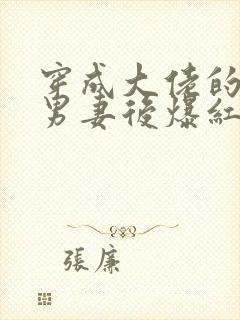 穿成大佬的
男妻後爆紅
張廉